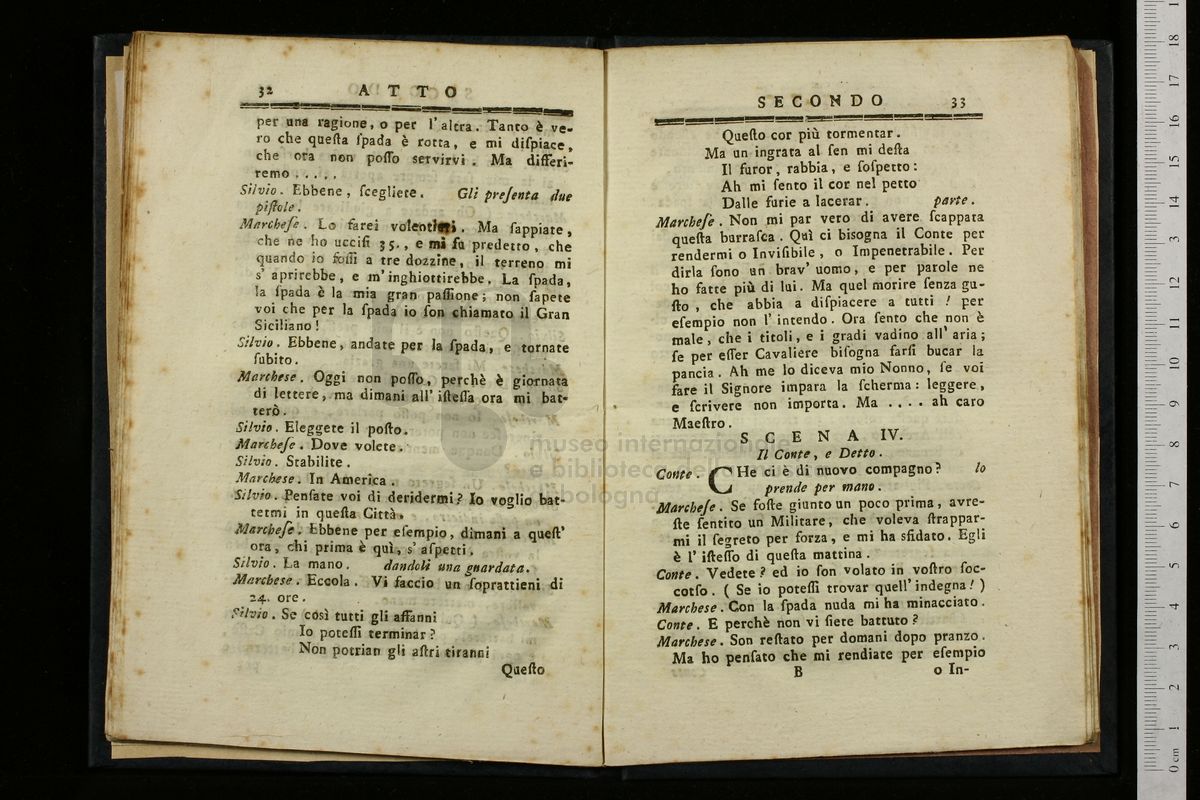 32 A T T O
per una ragione, o per l'altra. Tanto è ve-
ro che queſta ſpada è rotta, e mi diſpiace,
che ora non poſſo ſervirvi. Ma differi-
remo .....
Silvio. Ebbene, ſcegliete. Gli preſenta due
piſtole.
Marcheſe. Lo farei volentieri. Ma ſappiate,
che ne ho ucciſi 35., e mi fu predetto, che
quando io foſſi a tre dozzine, il terreno mi
s'aprirebbe, e m'inghiottirebbe. La ſpada,
la ſpada è la mia gran paſſione; non ſapete
voi che per la ſpada io ſon chiamato il Gran
Siciliano!
Silvio. Ebbene, andate per la ſpada, e tornate
ſubito.
Marchese. Oggi non poſſo, perchè è giornata
di lettere, ma dimani all'iſteſſa ora mi bat-
terò.
Silvio. Eleggete il poſto.
Marcheſe. Dove volete.
Silvio. Stabilite.
Marchese. In America.
Silvio. Penſate voi di deridermi? Io voglio bat-
termi in queſta Città.
Marcheſe. Ebbene per eſempio, dimani a queſt'
ora, chi prima è quì, s'aſpetti.
Silvio. La mano. dandoli una guardata.
Marchese. Eccola. Vi faccio un ſoprattieni di
24. ore.
Silvio. Se così tutti gli affanni
Io poteſſi terminar?
Non potrian gli aſtri tiranni
Queſto
SECONDO 33
Queſto cor più tormentar.
Ma un ingrata al ſen mi deſta
Il furor, rabbia, e ſoſpetto:
Ah mi ſento il cor nel petto
Dalle furie a lacerar. parte.
Marcheſe. Non mi par vero di avere ſcappata
queſta burraſca. Quì ci biſogna il Conte per
rendermi o Inviſibile, o Impenetrabile. Per
dirla ſono un brav'uomo, e per parole ne
ho fatte più di lui. Ma quel morire ſenza gu-
ſto, che abbia a diſpiacere a tutti! per
eſempio non l'intendo. Ora ſento che non è
male, che i titoli, e i gradi vadino all'aria;
ſe per eſſer Cavaliere biſogna farſi bucar la
pancia. Ah me lo diceva mio Nonno, ſe voi
fare il Signore impara la ſcherma: leggere,
e ſcrivere non importa. Ma .... ah caro
Maeſtro.
S C E N A IV.
Il Conte, e Detto.
Conte. CHe ci è di nuovo compagno? lo
prende per mano.
Marcheſe. Se foſte giunto un poco prima, avre-
ſte ſentito un Militare, che voleva ſtrappar-
mi il ſegreto per forza, e mi ha sfidato. Egli
è l'iſteſſo di queſta mattina.
Conte. Vedete? ed io ſon volato in voſtro ſoc-
corſo. (Se io poteſſi trovar quell'indegna!)
Marchese. Con la ſpada nuda mi ha minacciato.
Conte. E perchè non vi ſiete battuto?
Marchese. Son reſtato per domani dopo pranzo.
Ma ho penſato che mi rendiate per eſempio
B o In-
museo internazionale
e biblioteca della musica
di bologna